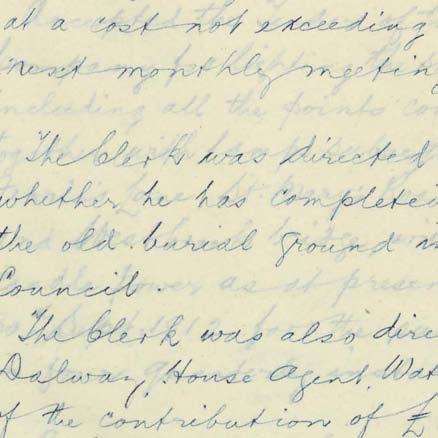 at a cost not exceeding
next monthly meeting
The Clerk was directed
whether he has completed
the old burial ground
Council.
The Clerk was also dire
Dalway, House Agent, Wat
of the contribution of £